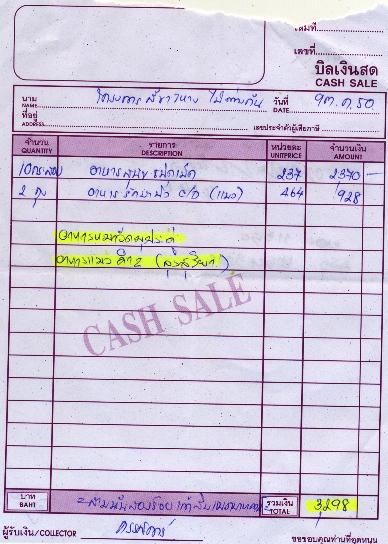 เล่มที่
เลขที่
บิลเงินสด
CASH SALE
นาม
NAME
โครงการสี่ขา วันที่
DATE ๑ ต.ค. ๕๐
ที่อยู่
ADDRESS
เลขประจำตัวผู้เสียภาษี
จำนวน รายการ หน่วยละ จำนวนเงิน
QUANTITY DESCRIPTION UNITPRICE AMOUNT
10 กระสอบ อาหารสุนัขชนิดเม็ด 237 2370 —
2 ถุง อาหาร c/d (แมว) 464 928
อาหารหมาวัด
อาหารแมว
CASH SALE
บาท
BAHT
=สามพันสองร้อยเก้าสิบแปดบาท= รวมเงิน
TOTAL 3298
ผู้รับเงิน/COLLECTOR
ขอขอบคุณท่านที่อุดหนุน